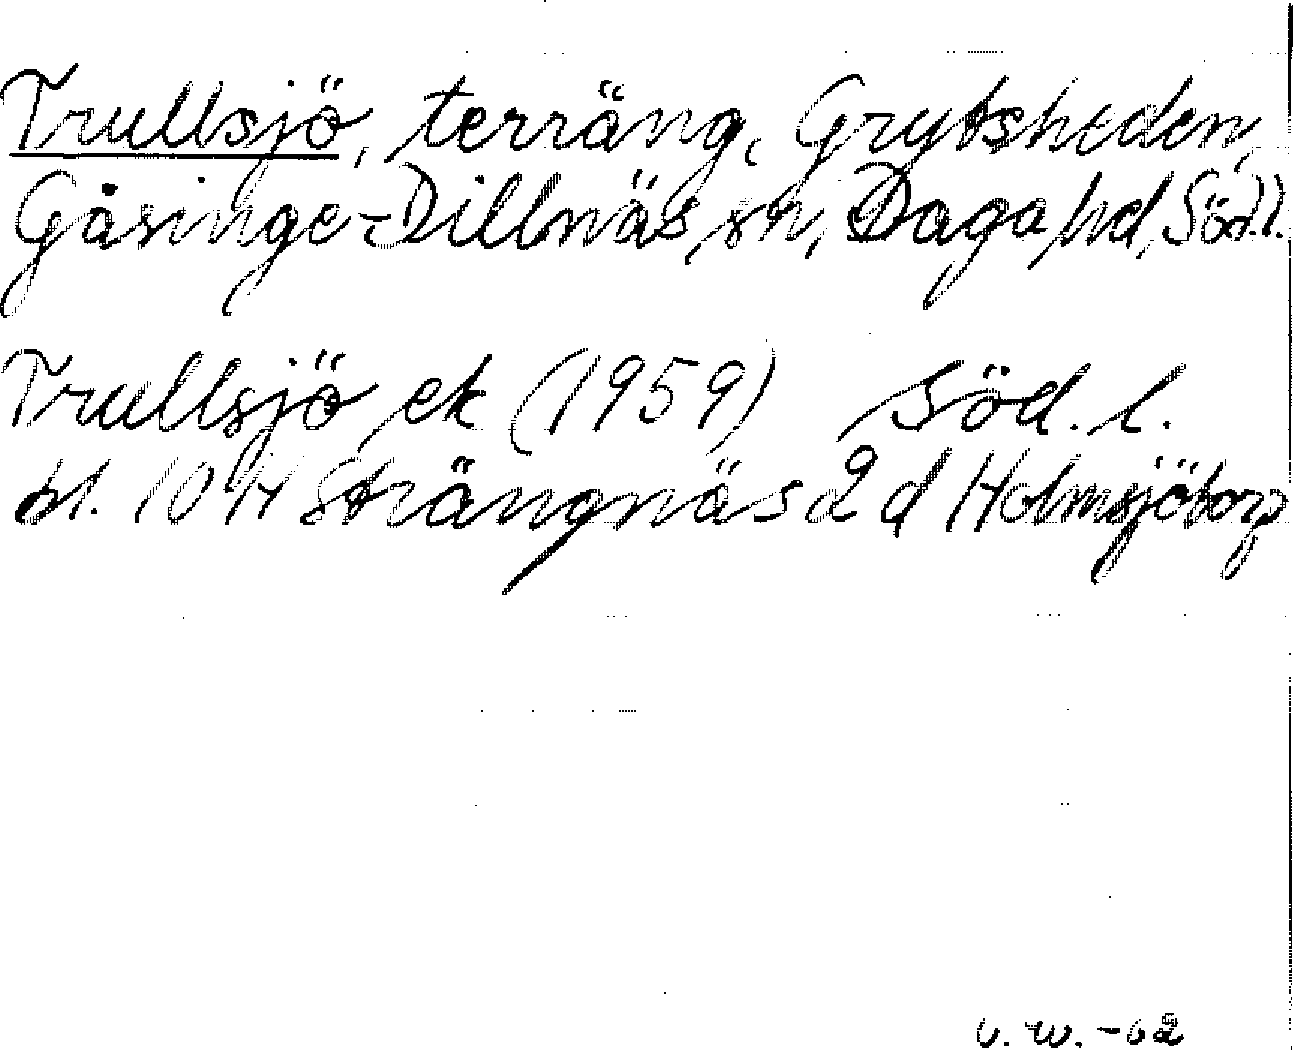 Trullsjö, terräng, Grytsheden,
Gåsinge-Dillnäs sn, Daga hd, Södl.
Trullsjö ek (1959) Söd. l.
bl. 10 H Strängnäs 2 d Holmsjötorp
v. w. -62